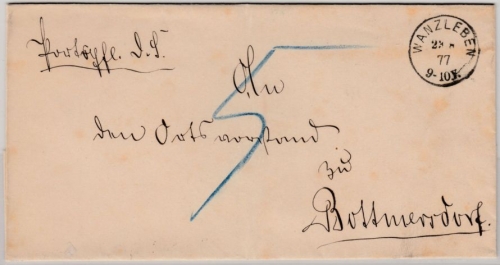 Portopfl. D. S.
WANZLEBEN
23 8
77
9-10V.
An
5
den Ortsvorstand
zu
Bottmersdorf.